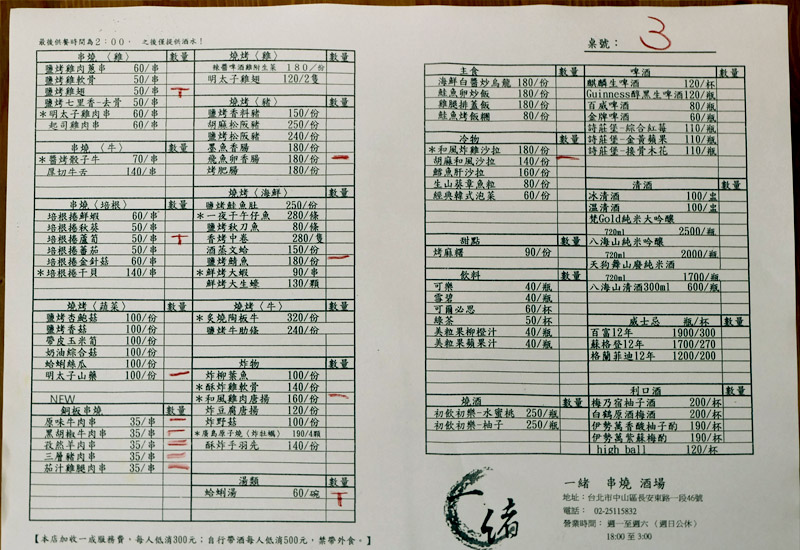 最後供餐時間為2：00， 之後僅提供酒水！
串燒（雞） 數量
鹽烤雞肉蔥串 60/串
鹽烤雞軟骨 50/串
鹽烤雞翅 50/串
鹽烤七里香-去骨 50/串
＊明太子雞肉串 60/串
起司雞肉串 60/串
串燒（牛） 數量
＊醬烤骰子牛 70/串
厚切牛舌 140/串
串燒（培根） 數量
培根捲鮮蝦 60/串
培根捲秋葵 50/串
培根捲蘆筍 50/串
培根捲蕃茄 60/串
培根捲金針菇 60/串
＊培根捲干貝 140/串
燒烤（蔬菜） 數量
鹽烤杏鮑菇 100/份
鹽烤香菇 100/份
帶皮玉米筍 100/份
奶油綜合菇 100/份
蛤蜊絲瓜 100/份
明太子山藥 100/份
NEW
銅板串燒 數量
原味牛肉串 35/串
黑胡椒牛肉串 35/串
孜然羊肉串 35/串
三層豬肉串 35/串
茄汁雞腿肉串 35/串
燒烤（雞） 數量
辣醬啤酒雞附生菜 180/份
明太子雞翅 120/2隻
燒烤（豬） 數量
鹽烤香料豬 150/份
胡麻松阪豬 250/份
鹽烤松阪豬 240/份
墨魚香腸 180/份
飛魚卵香腸 180/份
烤肥腸 180/份
燒烤（海鮮） 數量
鹽烤鮭魚肚 250/份
＊一夜干午仔魚 280/條
鹽烤秋刀魚 80/條
香烤中卷 280/隻
酒蒸文蛤 150/份
鹽烤鯖魚 180/份
＊鮮烤大蝦 90/串
鮮烤大生蠔 130/顆
燒烤（牛） 數量
＊炙燒陶板牛 320/份
鹽烤牛肋條 240/份
炸物 數量
炸柳葉魚 140/份
＊酥炸雞軟骨 140/份
＊和風雞肉唐揚 160/份
炸豆腐唐揚 120/份
炸野菇 100/份
＊廣島原子燒（炸牡蠣） 190/4顆
酥炸手羽先 140/份
湯類 數量
蛤蜊湯 60/碗
【本店加收一成服務費，每人低消300元；自行帶酒每人低消500元，禁帶外食。】
桌號： 3
主食 數量
海鮮白醬炒烏龍 180/份
鮭魚卵炒飯 180/份
雞腿排蓋飯 180/份
鮭魚烤飯糰 80/份
冷物 數量
＊和風炸雞沙拉 180/份
胡麻和風沙拉 140/份
鱈魚肝沙拉 160/份
生山葵章魚粒 80/份
經典韓式泡菜 60/份
甜點 數量
烤麻糬 90/份
飲料 數量
可樂 40/瓶
雪碧 40/瓶
可爾必思 60/杯
綠茶 50/杯
美粒果柳橙汁 40/瓶
美粒果蘋果汁 40/瓶
燒酒 數量
初飲初樂-水蜜桃 250/瓶
初飲初樂-柚子 250/瓶
啤酒 數量
麒麟生啤酒 120/杯
Guinness醇黑生啤酒 120/瓶
百威啤酒 80/瓶
金牌啤酒 60/瓶
詩莊堡-綜合紅莓 110/瓶
詩莊堡-金黃蘋果 110/瓶
詩莊堡-接骨木花 110/瓶
清酒 數量
冰清酒 100/盅
溫清酒 100/盅
梵Gold純米大吟釀
720ml 2500/瓶
八海山純米吟釀
720ml 2000/瓶
天狗舞山廢純米酒
720ml 1700/瓶
八海山清酒300ml 600/瓶
威士忌 瓶/杯 數量
百富12年 1900/300
蘇格登12年 1700/270
格蘭菲迪12年 1200/200
利口酒 數量
梅乃宿柚子酒 200/杯
白鶴原酒梅酒 200/杯
伊勢萬香酸柚子酌 190/杯
伊勢萬紫蘇梅酌 190/杯
high ball 120/杯
一緒
一緒 串燒 酒場
地址：台北市中山區長安東路一段46號
電話： 02-25115832
營業時間： 週一至週六 （週日公休）
18:00 至 3:00